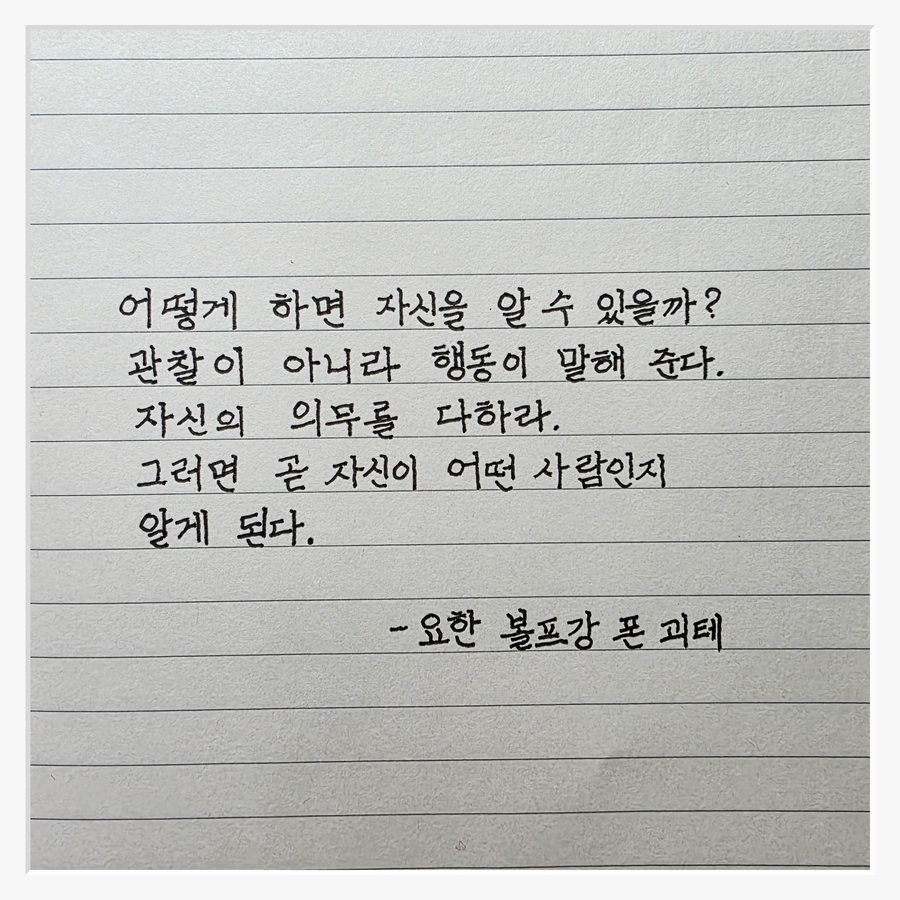 어떻게 하면 자신을 알 수 있을까?
관찰이 아니라 행동이 말해 준다.
자신의 의무를 다하라.
그러면 곧 자신이 어떤 사람인지
알게 된다.
- 요한 볼프강 폰 괴테